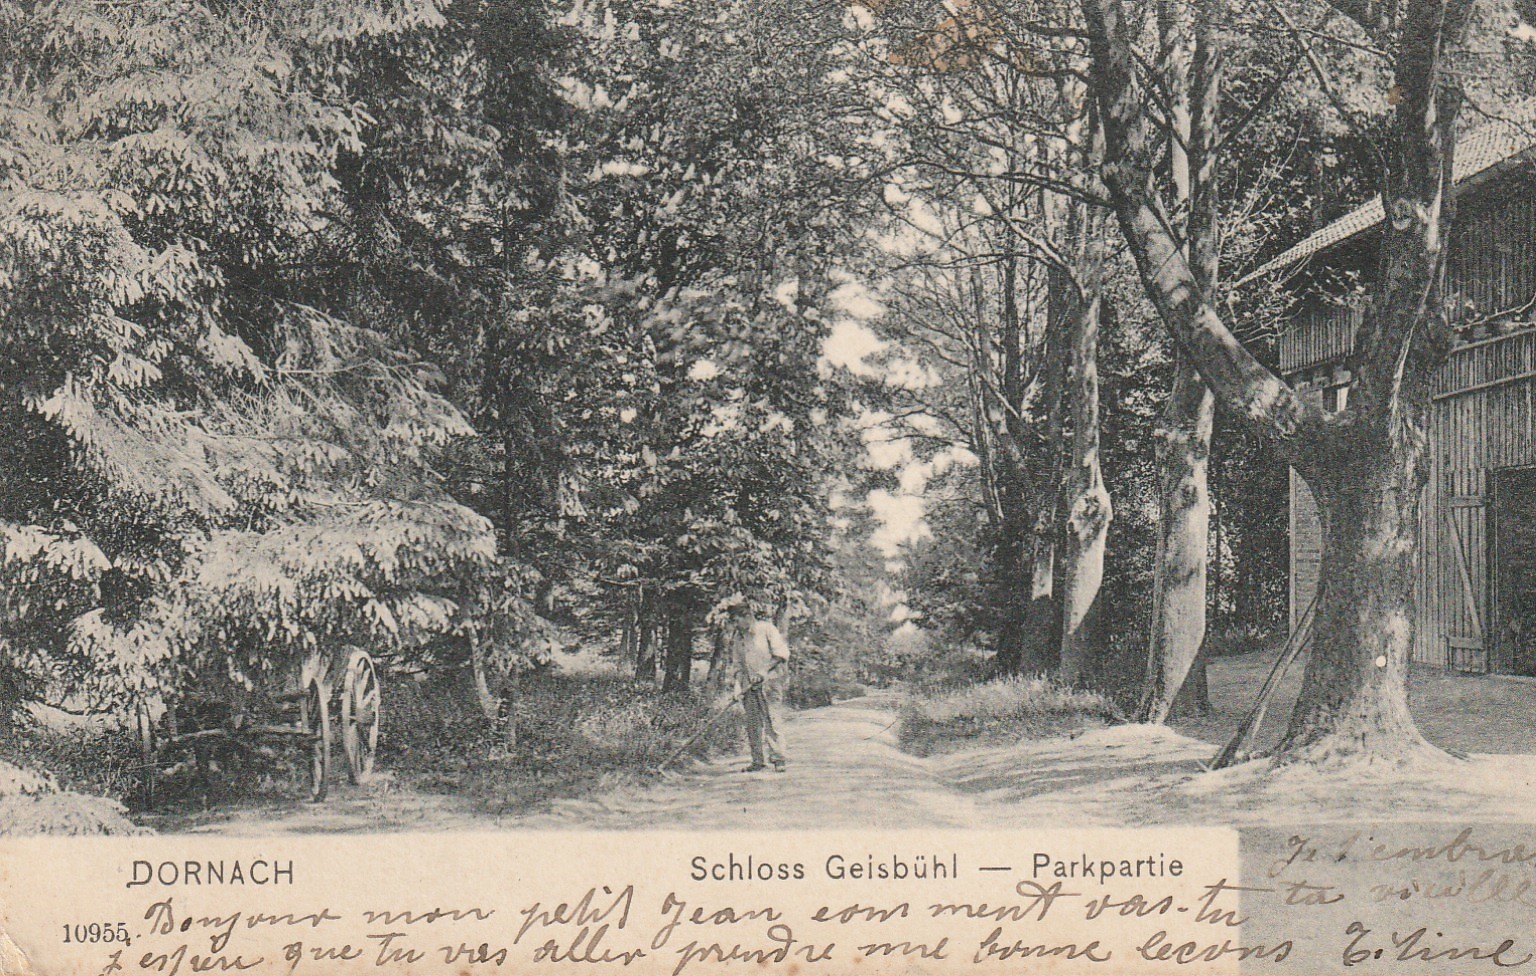 DORNACH
Schloss Geisbühl — Parkpartie
10955
Bonjour mon petit Jean com ment vas-tu
j espère que tu vas aller prendre une bonne lecons
Je t'embrasse
ta vieille
Titine